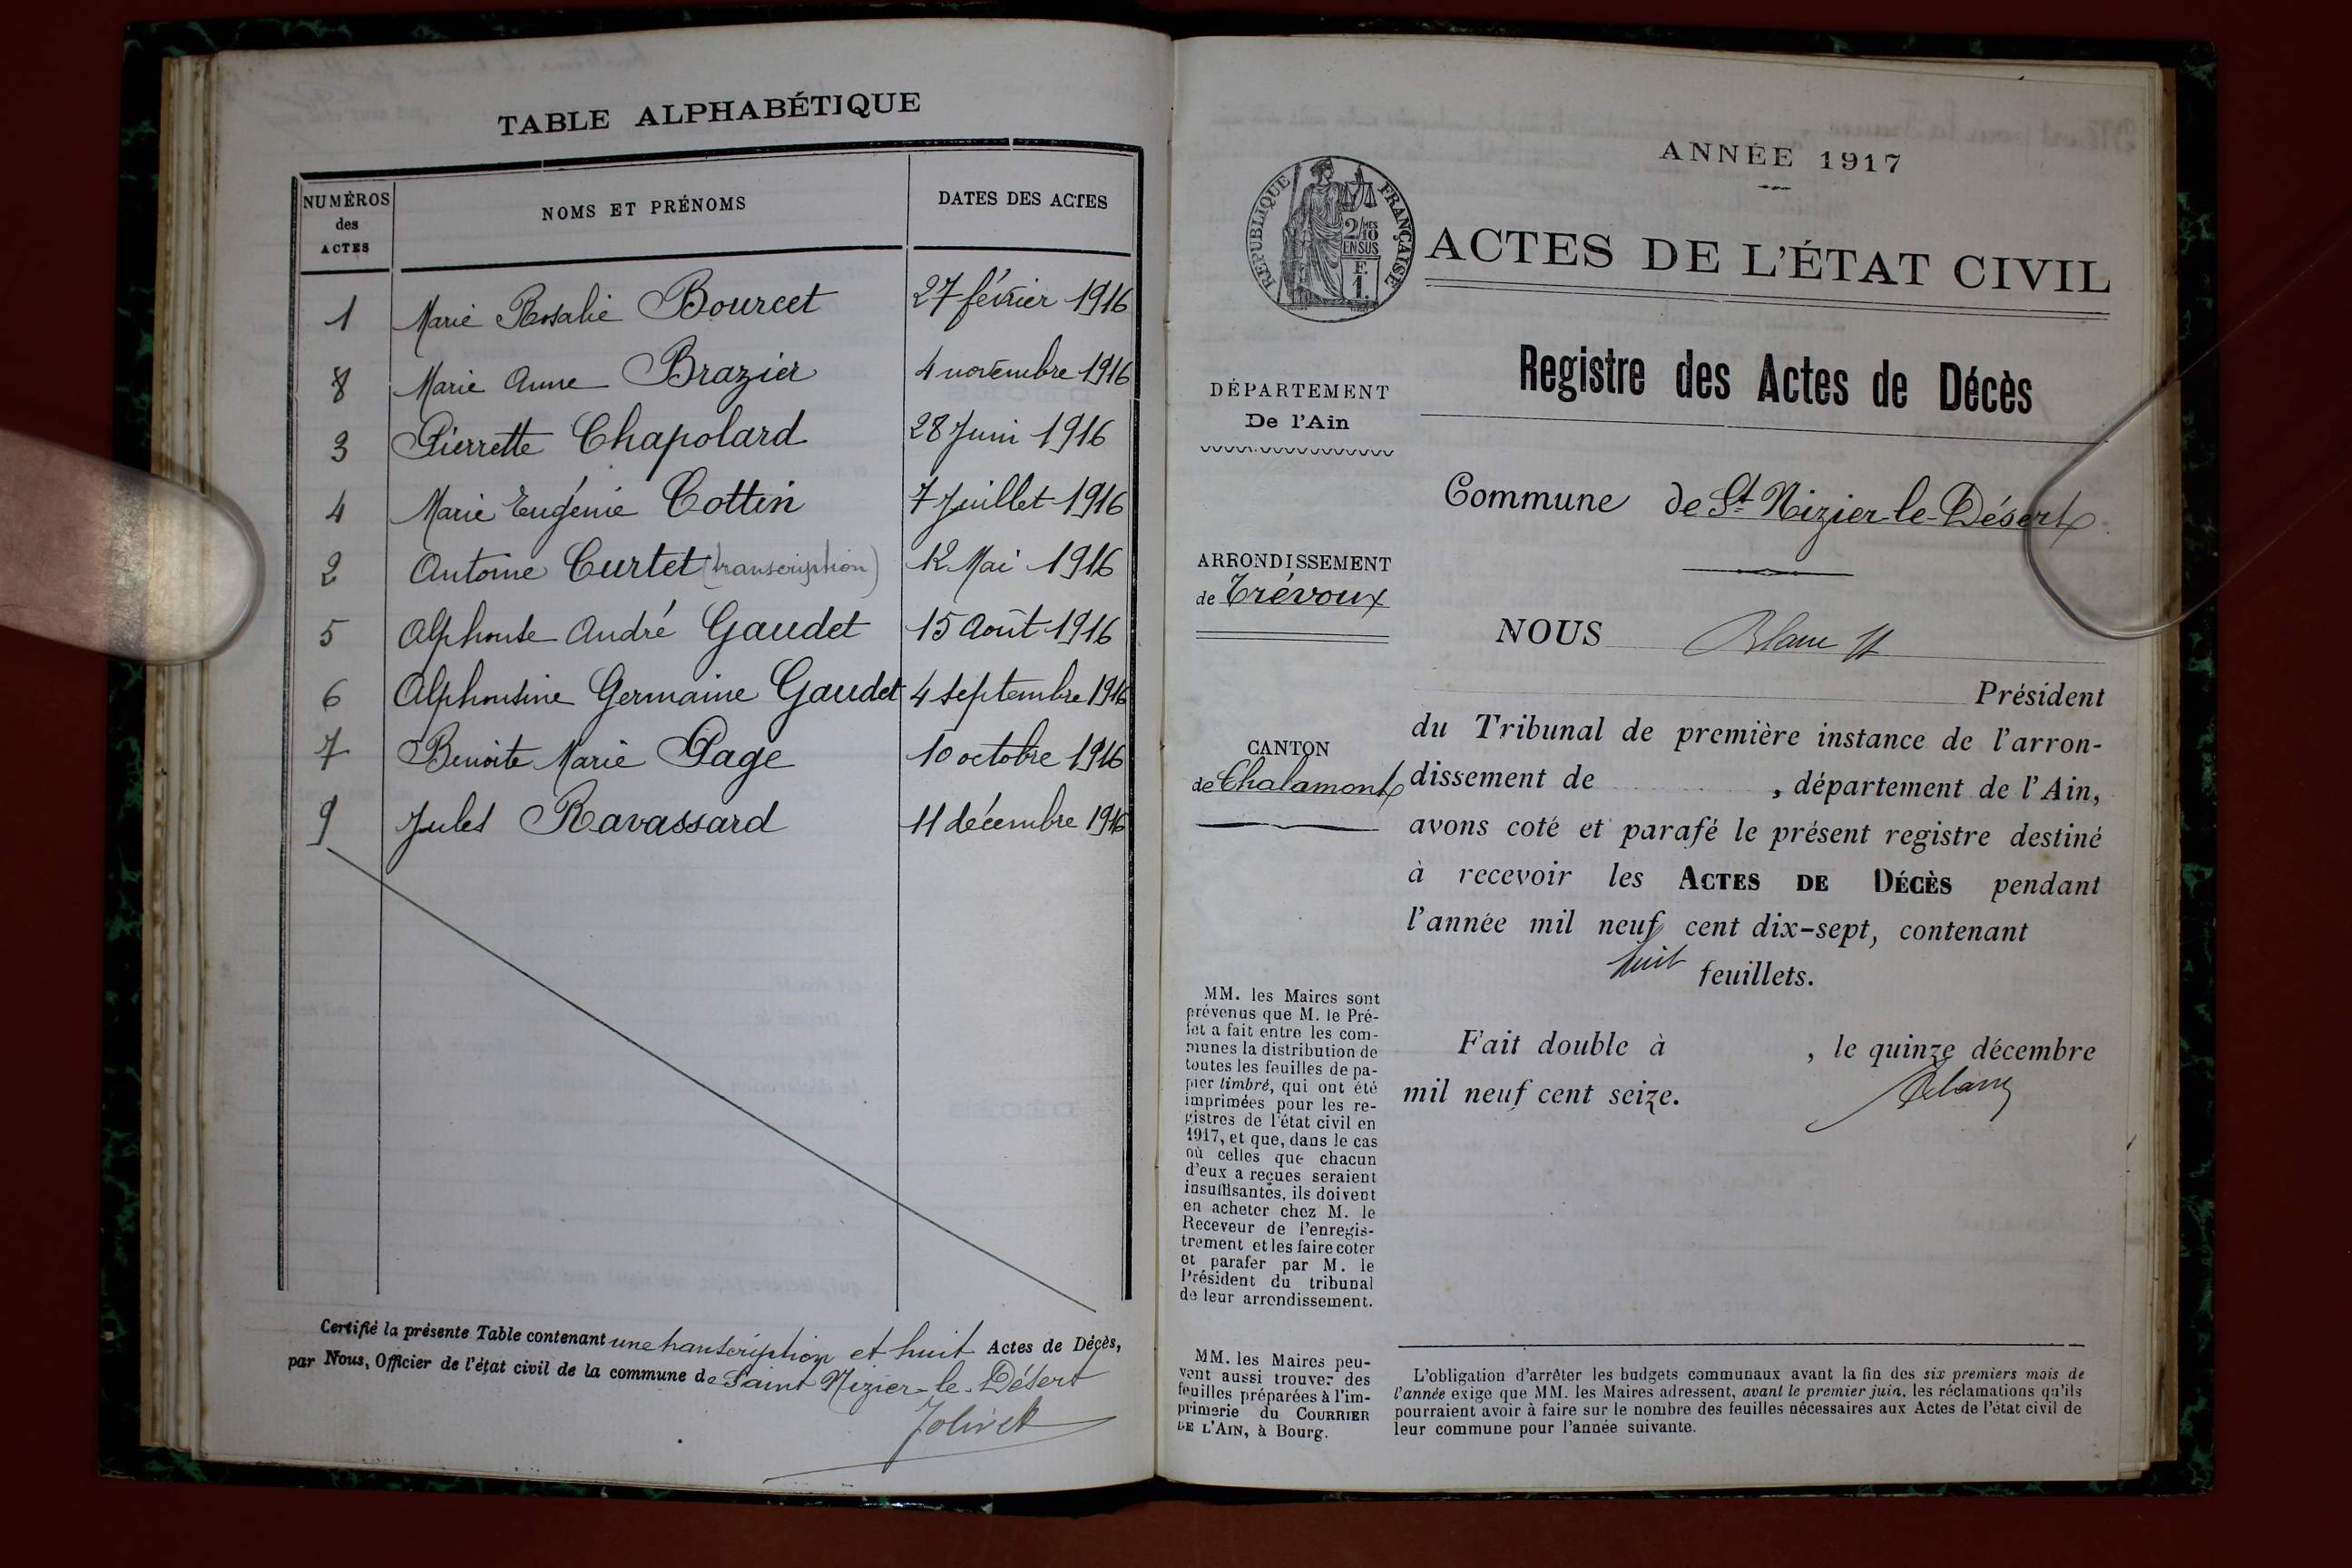 TABLE ALPHABÉTIQUE
NUMÉROS
des
ACTES
NOMS ET PRÉNOMS
DATES DES ACTES
1 Marie Rosalie Bourcet 27 février 1916
8 Marie Anne Brazier 4 novembre 1916
3 Pierrette Chapolard 28 Juin 1916
4 Marie Eugénie Cottin 7 Juillet 1916
2 Antoine Curtet (transcription) 12 Mai 1916
5 Alphonse André Gaudet 15 Août 1916
6 Alphonsine Germaine Gaudet 4 septembre 1916
7 Benoite Marie Page 10 octobre 1916
9 Jules Ravassard 11 décembre 1916
Certifié la présente Table contenant une transcription et huit Actes de Décès,
par Nous, Officier de l'état civil de la commune de Saint Nizier-le-Désert
Jolivet
ANNÉE 1917
RÉPUBLIQUE FRANÇAISE
2/10 MES
EN SUS
F.
1.
ACTES DE L'ÉTAT CIVIL
Registre des Actes de Décès
DÉPARTEMENT
De l'Ain
Commune de St Nizier-le-Désert
ARRONDISSEMENT
de Trévoux
CANTON
de Chalamont
NOUS
Président
du Tribunal de première instance de l'arron-
dissement de , département de l'Ain,
avons coté et parafé le présent registre destiné
à recevoir les ACTES DE DÉCÈS pendant
l'année mil neuf cent dix-sept, contenant
huit feuillets.
Fait double à , le quinze décembre
mil neuf cent seize.
MM. les Maires sont
prévenus que M. le Pré-
fet a fait entre les com-
munes la distribution de
toutes les feuilles de pa-
pier timbré, qui ont été
imprimées pour les re-
gistres de l'état civil en
1917, et que, dans le cas
où celles que chacun
d'eux a reçues seraient
insuffisantes, ils doivent
en acheter chez M. le
Receveur de l'enregis-
trement et les faire coter
et parafer par M. le
Président du tribunal
de leur arrondissement.
MM. les Maires peu-
vent aussi trouver des
feuilles préparées à l'im-
primerie du COURRIER
DE L'AIN, à Bourg.
L'obligation d'arrêter les budgets communaux avant la fin des six premiers mois de
l'année exige que MM. les Maires adressent, avant le premier juin, les réclamations qu'ils
pourraient avoir à faire sur le nombre des feuilles nécessaires aux Actes de l'état civil de
leur commune pour l'année suivante.